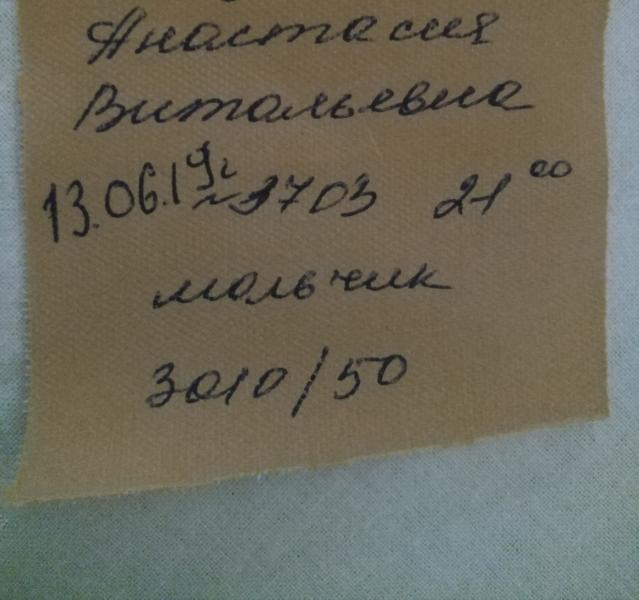 Анастасия
Витальевна
13.06.19г 3703 21⁰⁰
мальчик
3010/50